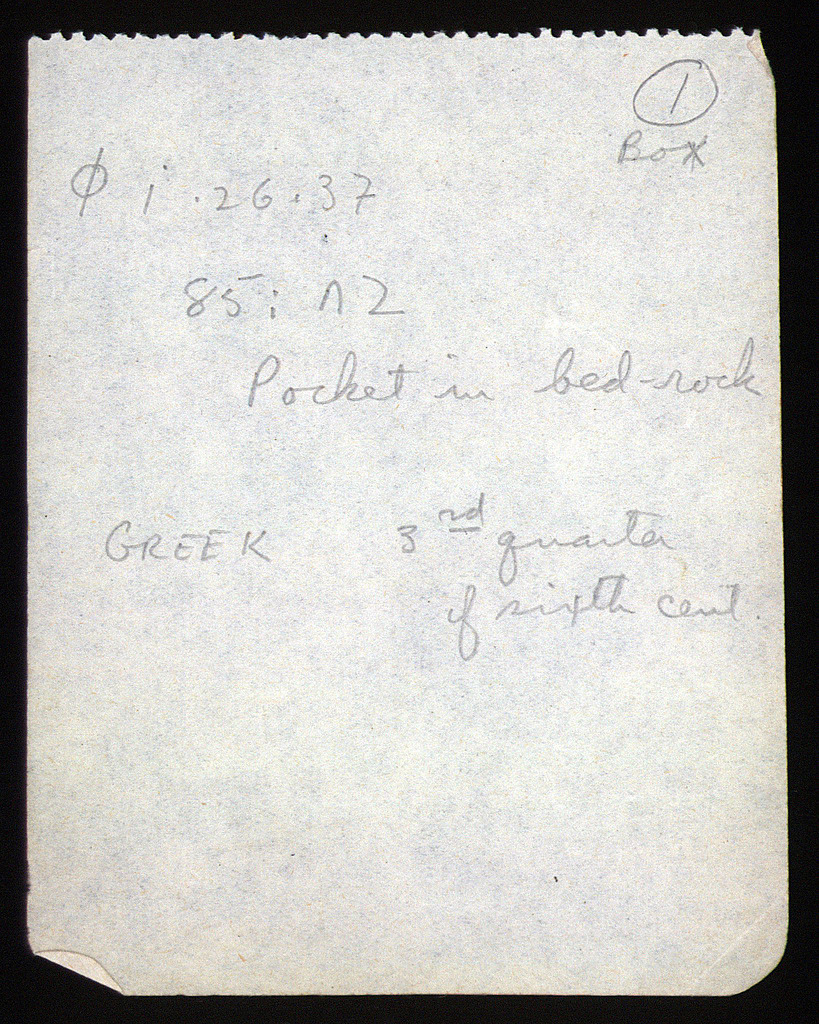 1
Box
φ i . 26 . 37
85 : ΛΖ
Pocket in bed-rock
GREEK 3rd quarter
of sixth cent.